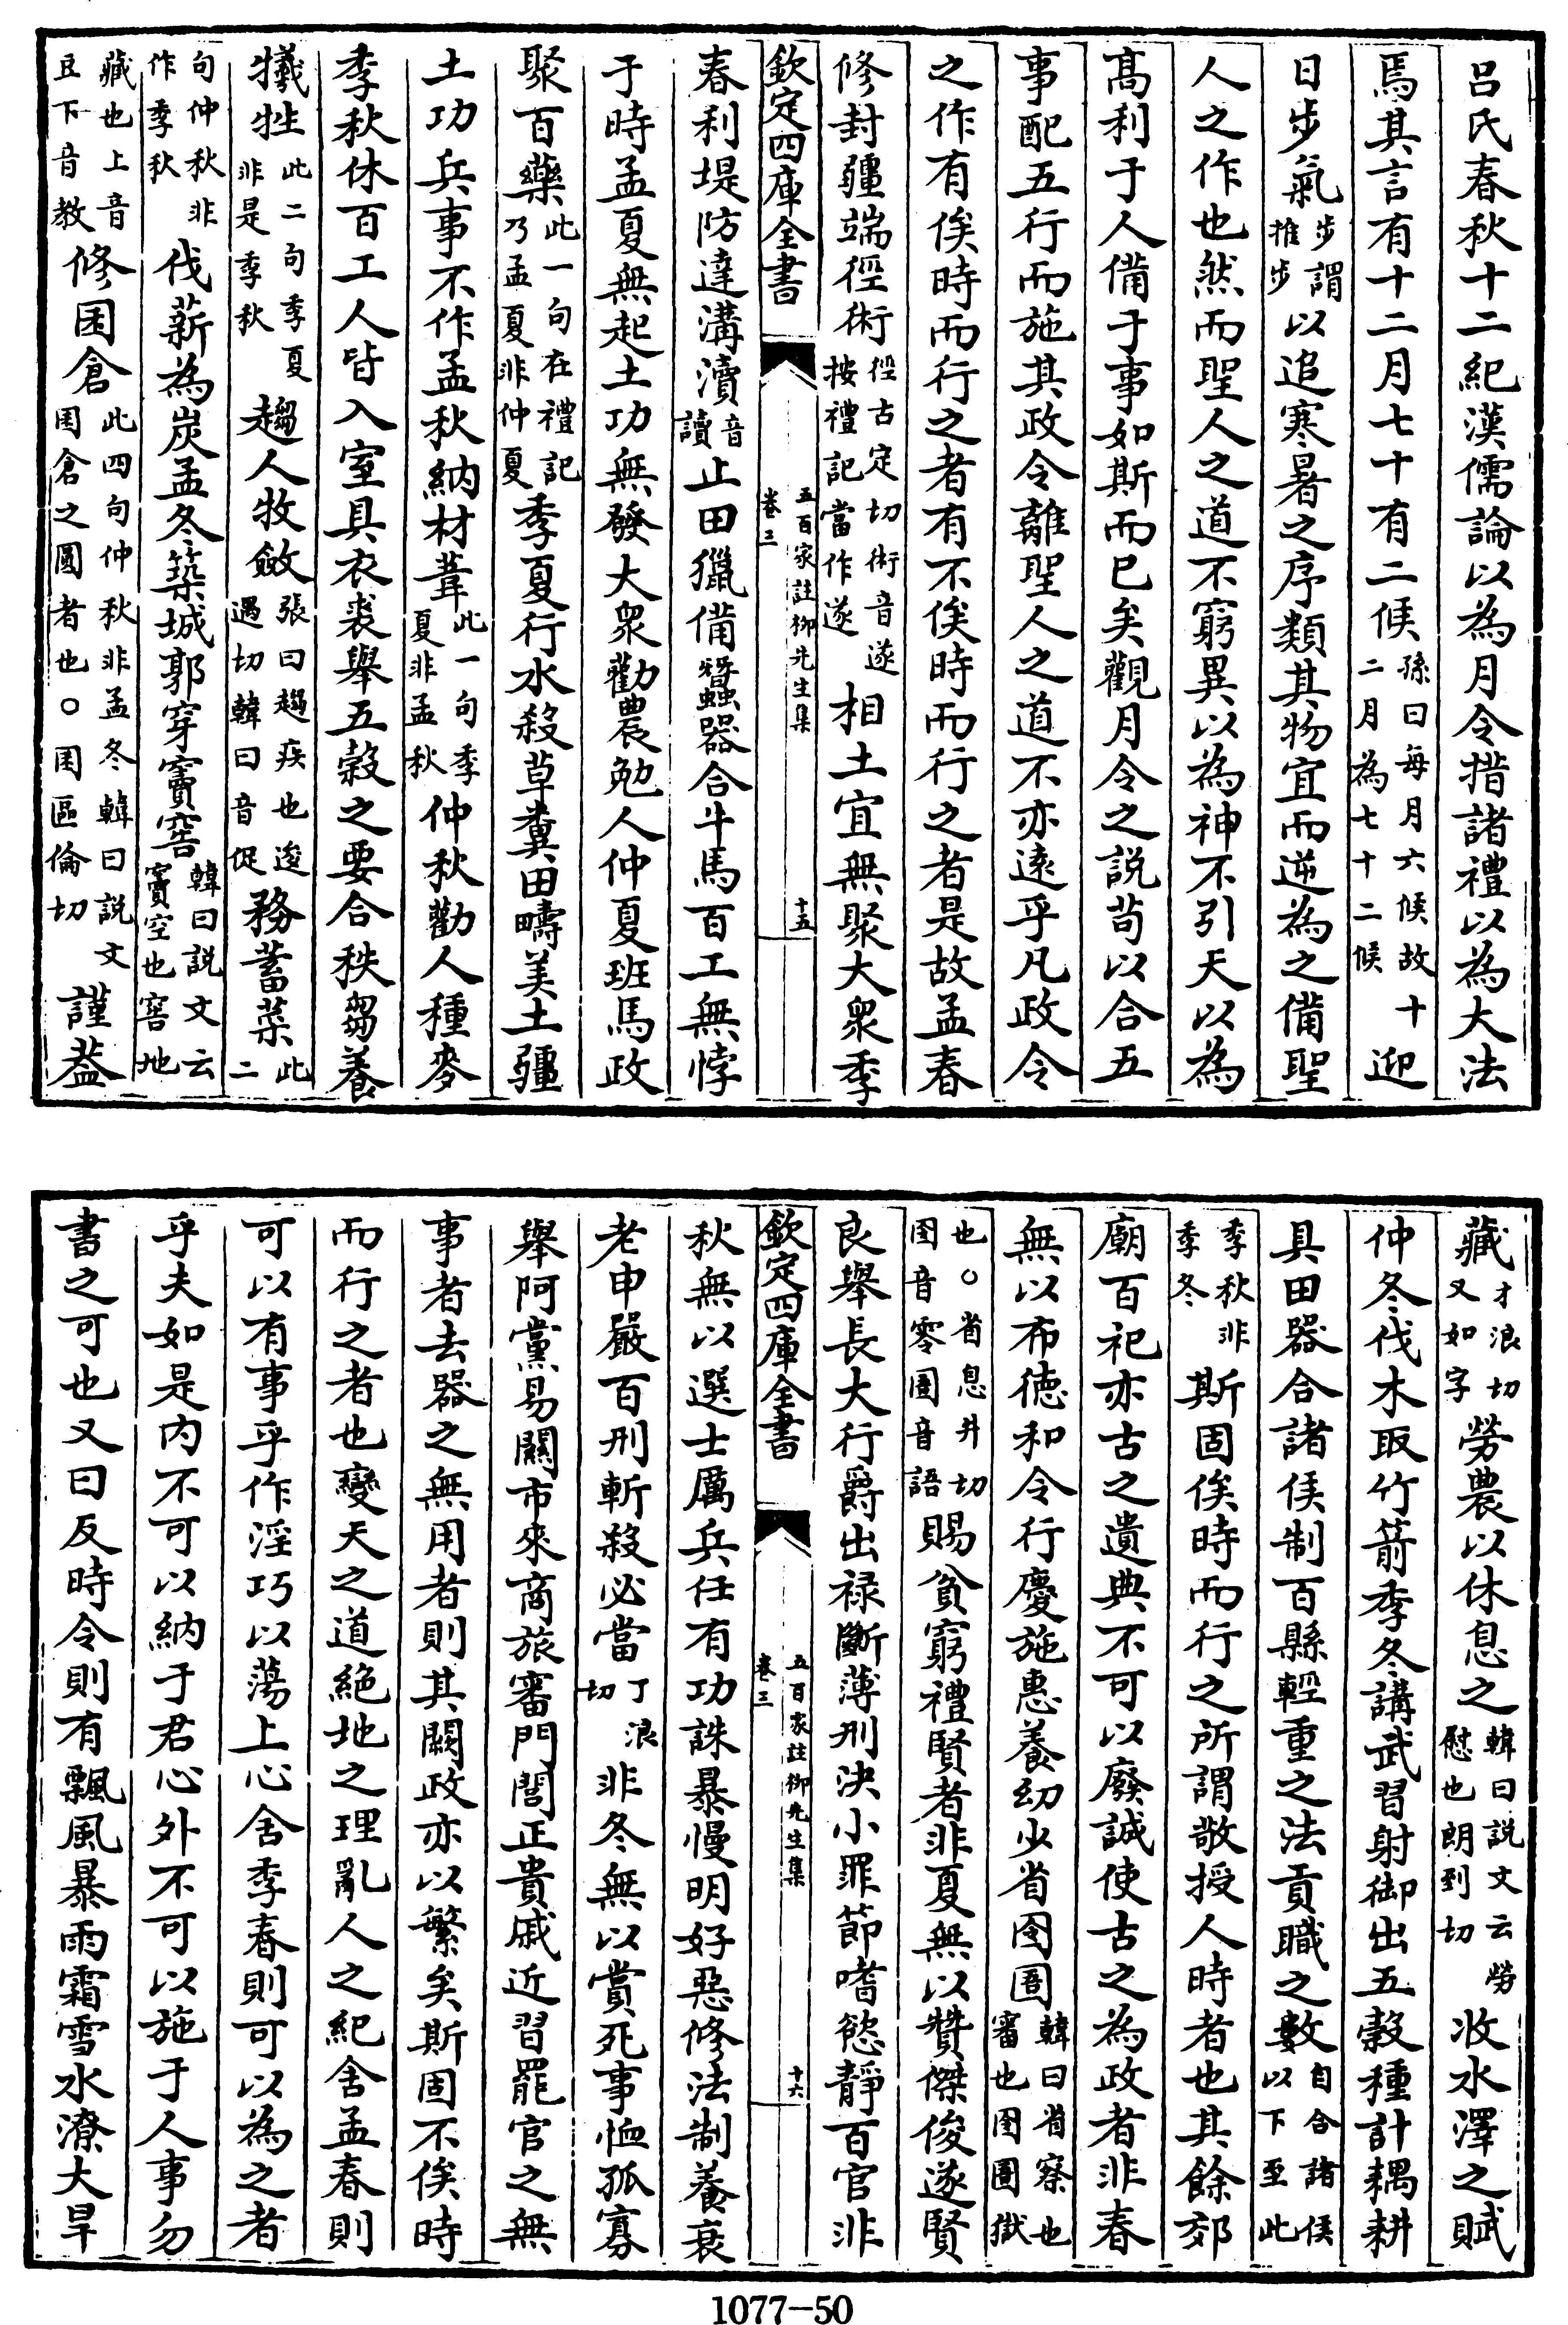 呂氏春秋十二紀漢儒論以為月令措諸禮以為大法
焉其言有十二月七十有二候孫曰每月六候故十二月為七十二候迎
日步氣步謂推步以追寒暑之序類其物宜而逆為之備聖
人之作也然而聖人之道不窮異以為神不引天以為
髙利于人備于事如斯而已矣觀月令之説苟以合五
事配五行而施其政令離聖人之道不亦逺乎凡政令
之作有俟時而行之者有不俟時而行之者是故孟春
修封疆端徑術徑古定切術音遂按禮記當作遂相土宜無聚大衆季
欽定四庫全書
五百家註柳先生集
卷三
十五
春利堤防達溝瀆音讀止田獵備蠶器合牛馬百工無悖
于時孟夏無起土功無發大衆勸農勉人仲夏班馬政
聚百藥此一句在禮記乃孟夏非仲夏季夏行水殺草糞田疇美土疆
土功兵事不作孟秋納材葦此一句季夏非孟秋仲秋勸人種麥
季秋休百工人皆入室具衣裘舉五穀之要合秩芻養
犧牲此二句季夏非是季秋趨人牧斂張曰趨疾也逡遇切韓曰音促務蓄菜此二
句仲秋非作季秋伐薪為炭孟冬築城郭穿竇窖韓曰説文云竇空也窖地
藏也上音豆下音教修囷倉此四句仲秋非孟冬韓曰説文囷倉之圓者也○囷區倫切謹葢
藏才浪切又如字勞農以休息之韓曰説文云勞慰也郎到切收水澤之賦
仲冬伐木取竹箭季冬講武習射御出五穀種計耦耕
具田器合諸侯制百縣輕重之法貢職之數自合諸侯以下至此
季秋非季冬斯固俟時而行之所謂敬授人時者也其餘郊
廟百祀亦古之遺典不可以廢誠使古之為政者非春
無以布徳和令行慶施惠養幼少省囹圄韓曰省察也審也囹圄獄
也○省息井切囹音零圄音語賜貧窮禮賢者非夏無以贊傑俊遂賢
良舉長大行爵出祿斷薄刑決小罪節嗜慾靜百官非
欽定四庫全書
五百家註柳先生集
卷三
十六
秋無以選士厲兵任有功誅暴慢明好惡修法制養衰
老申嚴百刑斬殺必當丁浪切非冬無以賞死事恤孤寡
舉阿黨易關市來商旅審門閭正貴戚近習罷官之無
事者去器之無用者則其闕政亦以繁矣斯固不俟時
而行之者也變天之道絶地之理亂人之紀舍孟春則
可以有事乎作淫巧以蕩上心舍季春則可以為之者
乎夫如是内不可以納于君心外不可以施于人事勿
書之可也又曰反時令則有飄風暴雨霜雪水潦大旱
1077-50